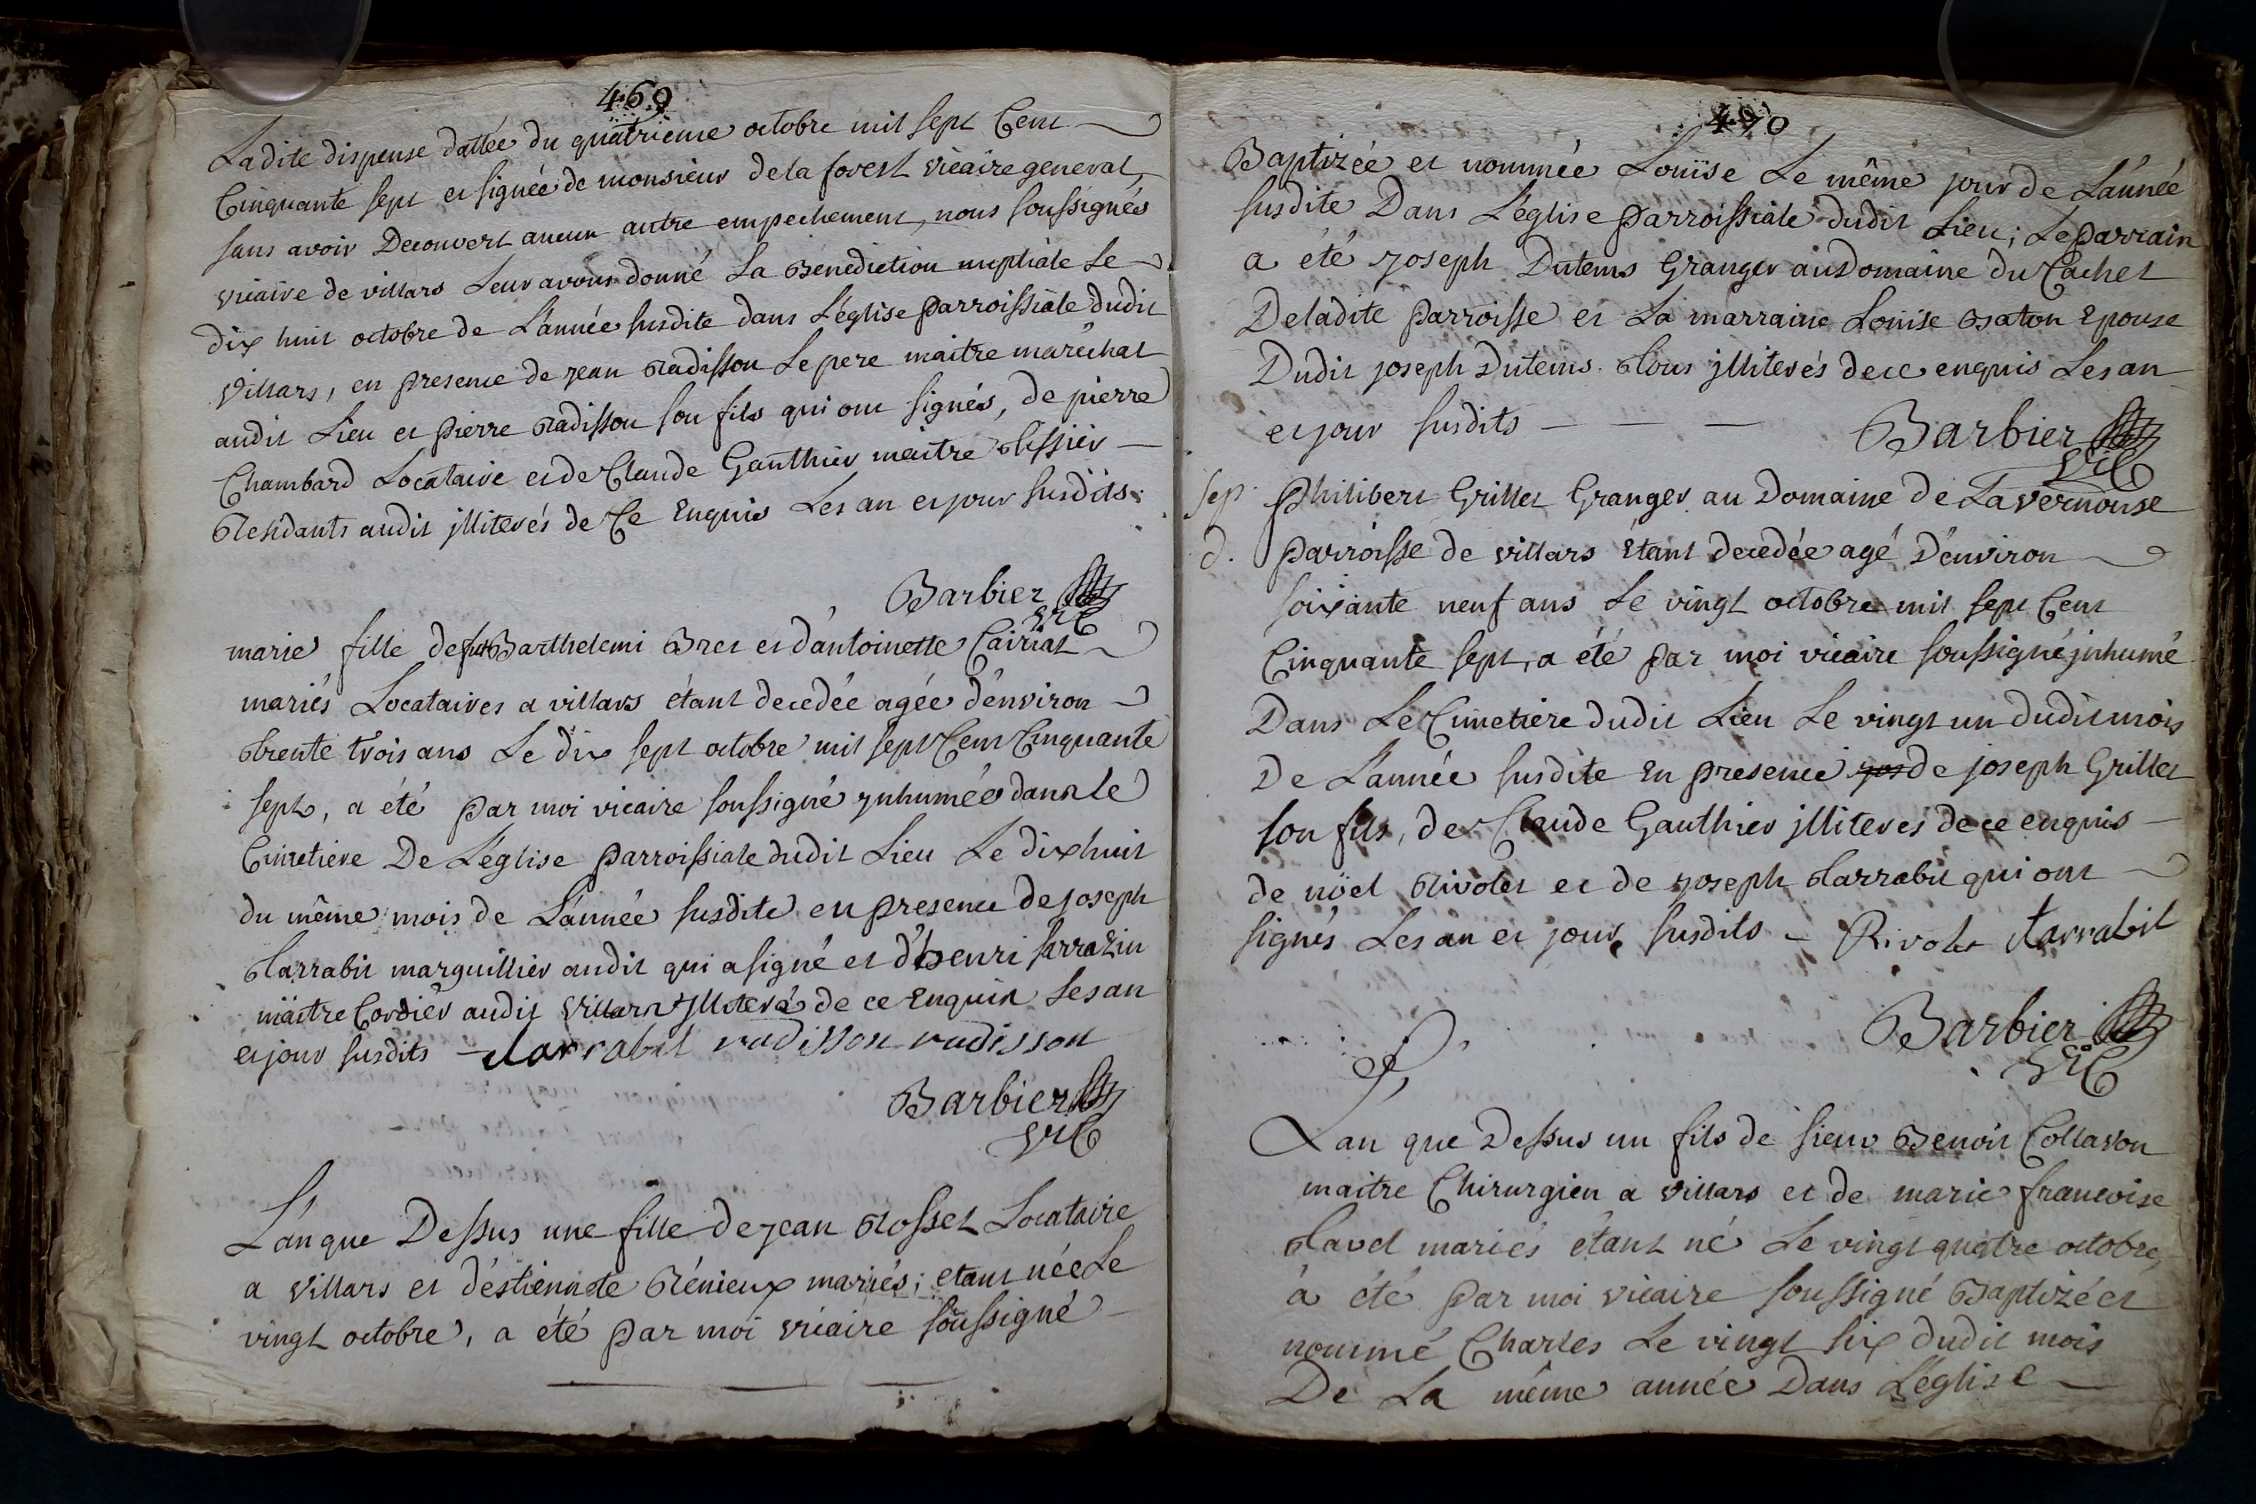 469
Ladite dispense dattée du quatrieme octobre mil sept Cent
Cinquante sept et signée de monsieur dela forest vicaire general,
sans avoir Decouvert aucun autre empechement, nous soussignés
vicaire de villars Leur avons donné La Benediction nuptiale Le
dix huit octobre de L'année susdite dans L'église parroissiale dudit
villars, en presence de jean Radisson Le pere maitre maréchal
audit Lieu et pierre Radisson son fils qui ont signés, de pierre
Chambard Locataire et de Claude Gauthier maitre Tissier
Residants audit jlliterés de Ce Enquis Les an et jour susdits.
Barbier
vic
marie fille de fut Barthelemi Bret et d'antoinette Cairiat
mariés Locataires a villars étant decedée agée d'environ
trente trois ans Le dix sept octobre mil sept Cent Cinquante
sept, a été par moi vicaire soussigné ynhumée dans le
Cimetiere De L'église parroissiale dudit Lieu Le dix huit
du même mois de L'année susdite en presence de joseph
Tarrabit marguillier audit qui a signé et d'henri sarrazin
maitre Cordier audit villars jlliteré de ce Enquis Les an
et jour susdits - tarrabit radisson radisson
Barbier
vic
L'an que Dessus une fille de jean Rosset Locataire
a villars et d'éstiennete Rénieux mariés; etant née Le
vingt octobre, a été par moi vicaire soussigné
470
Baptizée et nommée Louïse Le même jour de L'année
susdite Dans L'église parroissiale dudit Lieu; Le parrain
a été joseph Dutems Granger au Domaine du Cachet
De ladite parroisse et La marraine Louise Baton Epouse
Dudit joseph Dutems. Tous jlliterés de ce enquis Les an
et jour susdits
Barbier
vic
sep. philibert Grillet Granger au Domaine de La vernouse
d. parroisse de villars Etant decedée agé D'environ
soixante neuf ans Le vingt octobre mil sept Cent
Cinquante sept, a été par moi vicaire soussigné jnhumé
Dans Le Cimetiere dudit Lieu Le vingt un dudit mois
De L'année susdite En presence jos de joseph Grillet
son fils, de Claude Gauthier jlliterés de ce enquis
de noël Rivolet et de joseph Tarrabit qui ont
signés Les an et jour susdits - Rivolet tarrabit
Barbier
vic
L'an que Dessus un fils de sieur Benoit Collavon
maitre Chirurgien a villars et de marie francoise
Tavel mariés étant né Le vingt quatre octobre,
à été par moi vicaire soussigné Baptizé et
nommé Charles Le vingt six dudit mois
De La même année Dans L'église